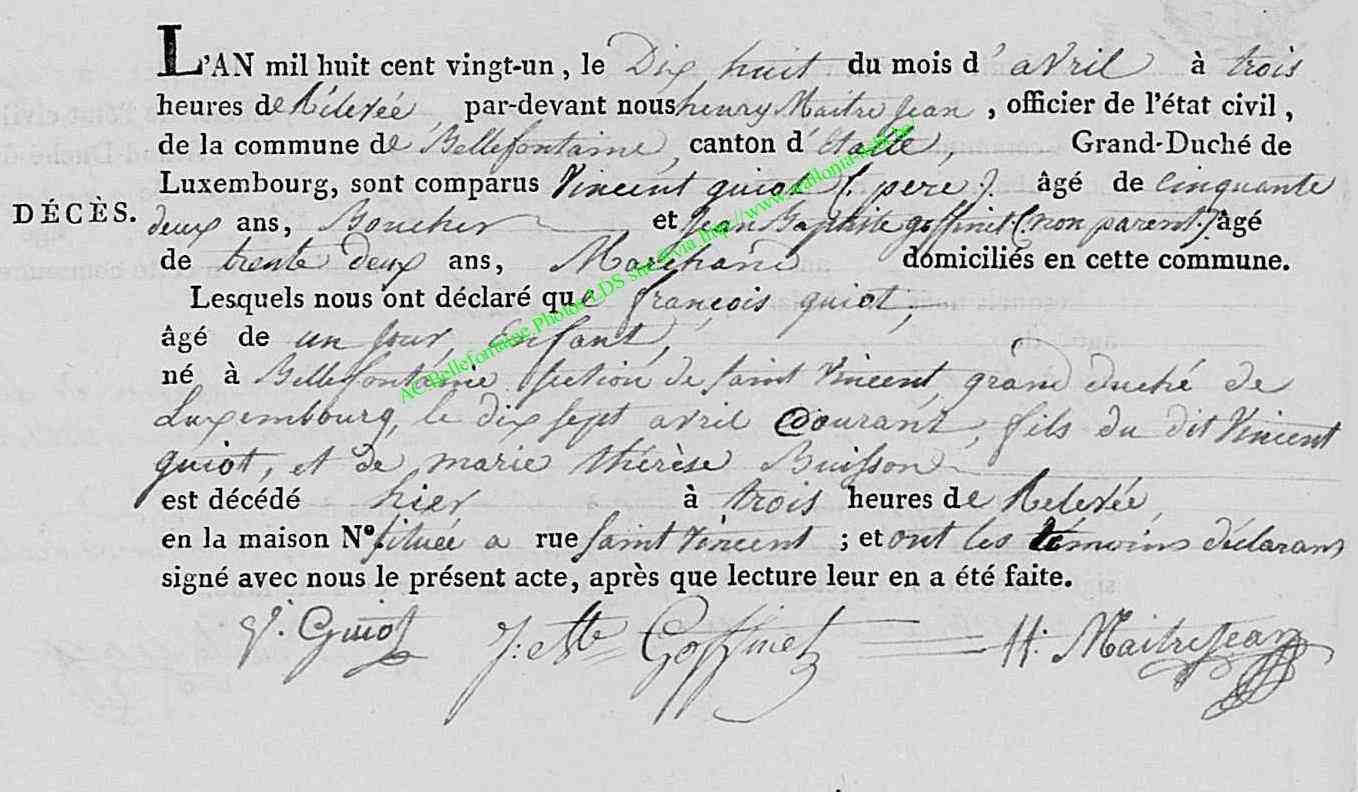 L'AN mil huit cent vingt-un, le Dix huit du mois d' avril à trois
heures de Relevée par-devant nous henry Maitre jean, officier de l'état civil,
de la commune de Bellefontaine, canton d'Etalle, Grand-Duché de
Luxembourg, sont comparus Vincent guiot (: pere :). âgé de cinquante
DÉCÈS. deux ans, Boucher et jean Baptiste goffinet (: non parent :) âgé
de trente deux ans, Marchand domiciliés en cette commune.
Lesquels nous ont déclaré que françois guiot,
âgé de un jour, Enfant,
né à Bellefontaine section de saint Vincent, grand duché de
Luxembourg, le dix sept avril courant, fils du dit Vincent
guiot, et de marie thérèse Buisson
est décédé hier à trois heures de Relevée,
en la maison N° située a rue saint Vincent ; et ont les témoins déclarans
signé avec nous le présent acte, après que lecture leur en a été faite.
V. Guiot J: Bte Goffinet H: MaitreJean
AC Bellefontaine Photos LDS site via http://www.wallonia-